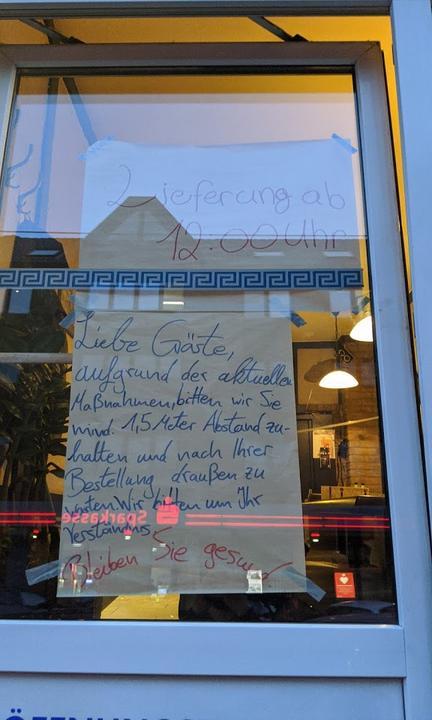 Lieferung ab
12:00 Uhr
Liebe Gäste,
aufgrund der aktuellen
Maßnahmen, bitten wir Sie
mind. 1,5 Meter Abstand zu-
halten und nach Ihrer
Bestellung draußen zu
warten. Wir bitten um Ihr
Verständnis.
Sparkasse
Bleiben Sie gesund